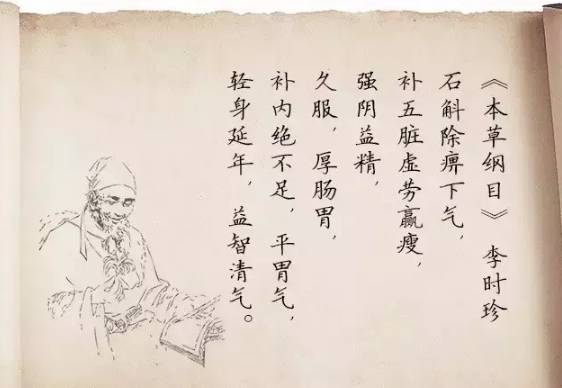 《本草纲目》 李时珍
石斛除痹下气，
补五脏虚劳赢瘦，
强阴益精，
久服，厚肠胃，
补内绝不足，平胃气，
轻身延年，益智清气。